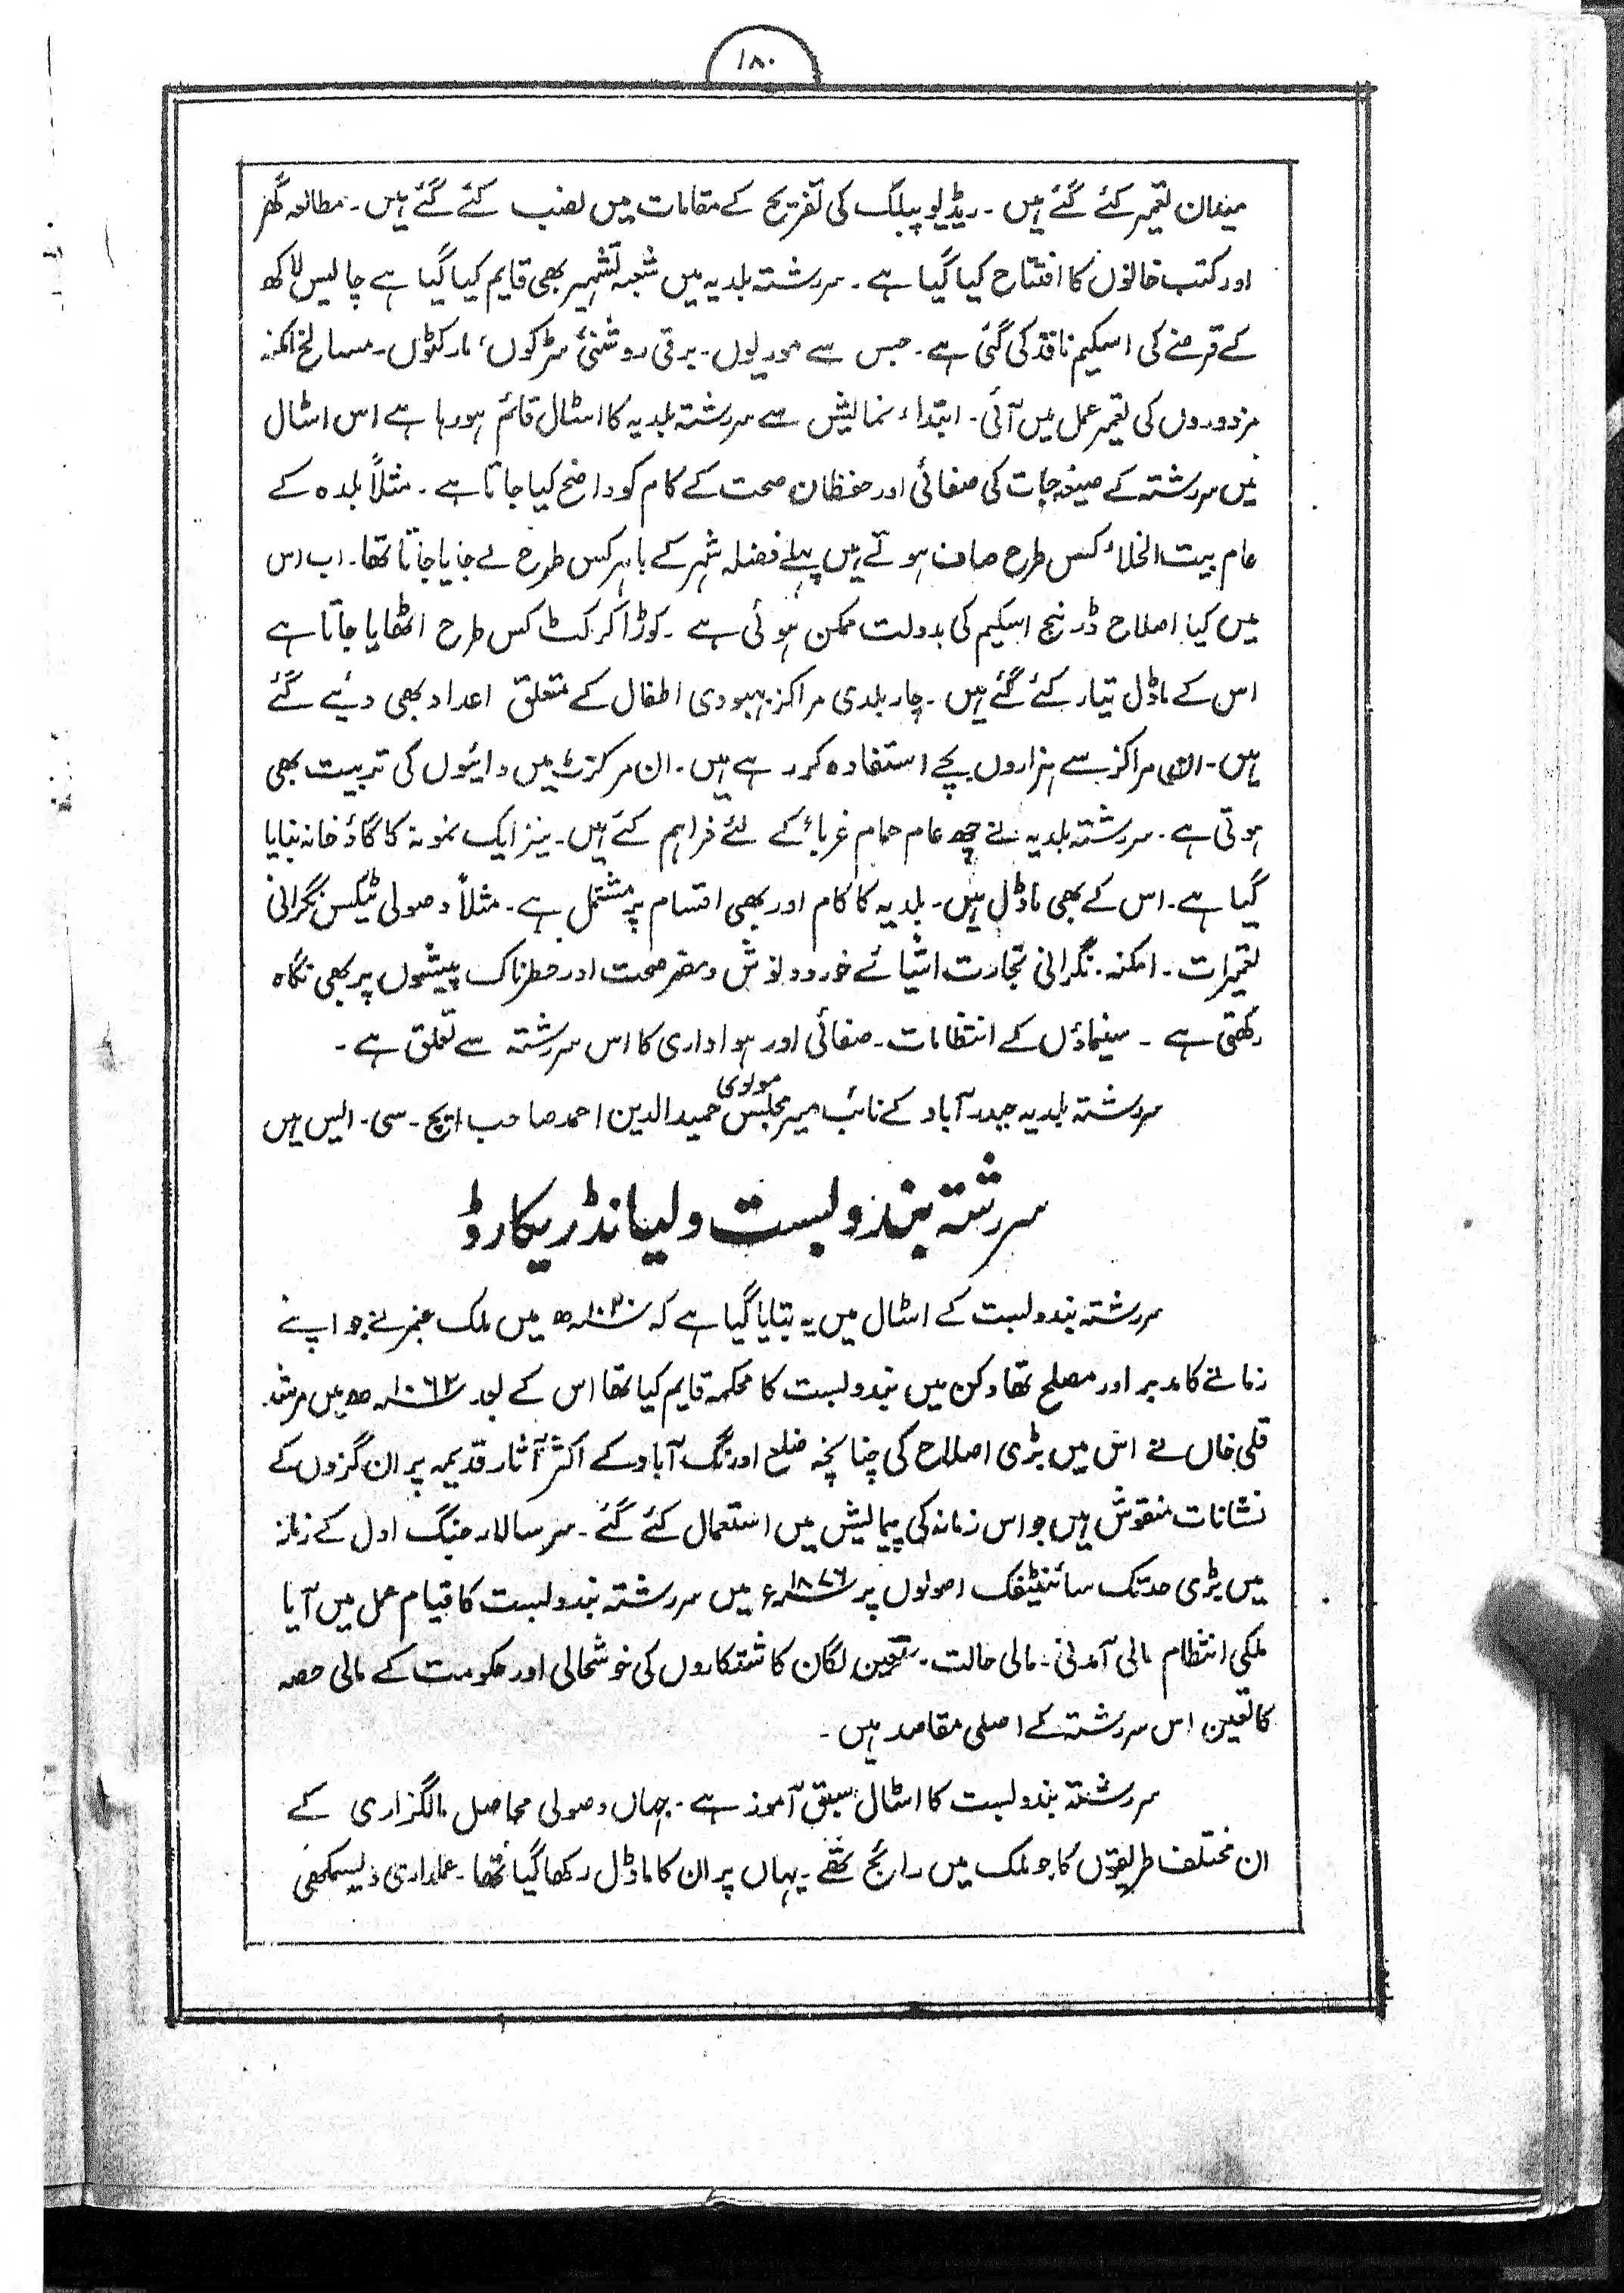 ۱۸۰
میدان تعمیر کئے گئے ہیں ۔ ریڈیو پبلک کی تفریح کے مقامات میں نصب کئے گئے ہیں ۔ مطالعہ گھر
اور کتب خانوں کا افتتاح کیا گیا ہے ۔ سررشتہ بلدیہ میں شعبہ تشہیر بھی قایم کیا گیا ہے چالیس لاکھ
کے قرضے کی اسکیم نافذ کی گئی ہے ۔ جس سے موریوں ۔ برقی روشنی، سڑکوں، مارکٹوں ۔ مسالخ امکنہ
مزدوروں کی تعمیر عمل میں آئی ۔ ابتداء نمائش سے سررشتہ بلدیہ کا اسٹال قائم ہو رہا ہے اس اسٹال
میں سررشتہ کے صیغہ جات کی صفائی اور حفظان صحت کے کام کو واضح کیا جاتا ہے ۔ مثلاً بلدہ کے
عام بیت الخلاء کس طرح صاف ہوتے ہیں پہلے فضلہ شہر کے باہر کس طرح لے جایا جاتا تھا ۔ اب اس
میں کیا اصلاح ڈرنیج اسکیم کی بدولت ممکن ہوئی ہے ۔ کوڑا کرکٹ کس طرح اٹھایا جاتا ہے
اس کے ماڈل تیار کئے گئے ہیں ۔ چار بلدی مراکز بہبودی اطفال کے متعلق اعداد بھی دیئے گئے
ہیں ۔ ان مراکز سے ہزاروں بچے استفادہ کر رہے ہیں ۔ ان مرکز میں دائیوں کی تربیت بھی
ہوتی ہے ۔ سررشتہ بلدیہ نے چھ عام حمام غرباء کے لئے فراہم کئے ہیں ۔ نیز ایک نمونہ کا گاؤ خانہ بنایا
گیا ہے ۔ اس کے بھی ماڈل ہیں ۔ بلدیہ کا کام اور بھی اقسام پر مشتمل ہے ۔ مثلاً وصولی ٹیکس نگرانی
تعمیرات ۔ امکنہ ۔ نگرانی تجارت اشیائے خورد و نوش و مضر صحت اور خطرناک پیشوں پر بھی نگاہ
رکھتی ہے ۔ سینماؤں کے انتظامات ۔ صفائی اور ہواداری کا اس سررشتہ سے تعلق ہے ۔
سررشتہ بلدیہ حیدرآباد کے نائب میر مجلس مولوی حمیدالدین احمد صاحب ایچ ۔ سی ۔ ایس ہیں
سررشتہ بندوبست و لیانڈ ریکارڈ
سررشتہ بندوبست کے اسٹال میں یہ بتایا گیا ہے کہ سنہ ھ میں ملک عنبر نے جو اپنے
زمانے کا مدبر اور مصلح تھا دکن میں بندوبست کا محکمہ قایم کیا تھا اس کے بعد سنہ ۱۰۶۲ ھ میں مرشد
قلی خاں نے اس میں بڑی اصلاح کی چنانچہ ضلع اورنگ آباد کے اکثر آثار قدیمہ پر ان گزوں کے
نشانات منقوش ہیں جو اس زمانہ کی پیمایش میں استعمال کئے گئے ۔ سر سالار جنگ اول کے زمانہ
میں بڑی حد تک سائنٹیفک اصولوں پر سنہ ۱۸۷۶ ء میں سررشتہ بندوبست کا قیام عمل میں آیا
ملکی انتظام مالی آمدنی ۔ مالی حالت ۔ تعین لگان کاشتکاروں کی خوشحالی اور حکومت کے مالی حصہ
کا تعین اس سررشتہ کے اصلی مقاصد ہیں ۔
سررشتہ بندوبست کا اسٹال سبق آموز ہے ۔ جہاں وصولی محاصل مالگزاری کے
ان مختلف طریقوں کا جو ملک میں رائج تھے ۔ یہاں پر ان کا ماڈل رکھا گیا تھا ۔ عملداری دیسمکھی